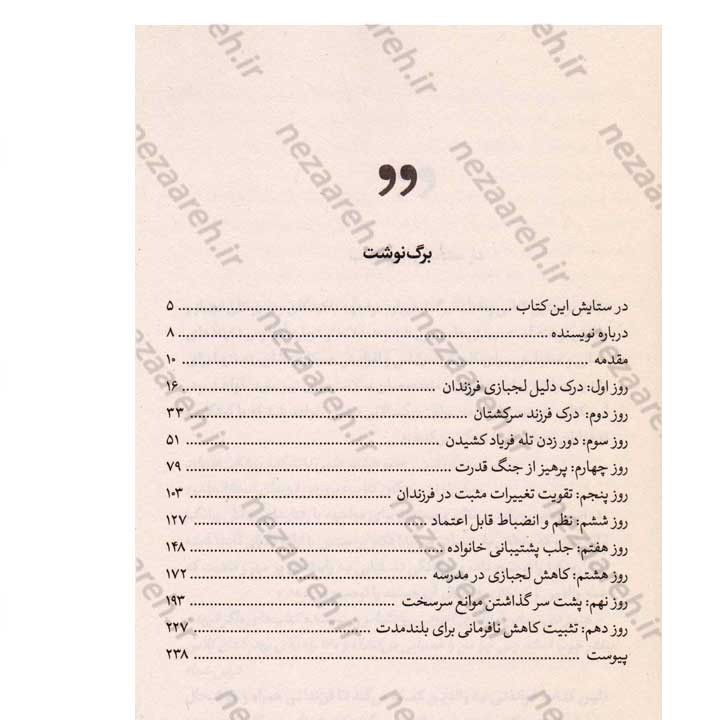 برگ‌نوشت
در ستایش این کتاب ........ ۵
درباره نویسنده ........ ۸
مقدمه ........ ۱۰
روز اول: درک دلیل لجبازی فرزندان ........ ۱۶
روز دوم: درک فرزند سرکشتان ........ ۳۳
روز سوم: دور زدن تله فریاد کشیدن ........ ۵۱
روز چهارم: پرهیز از جنگ قدرت ........ ۷۹
روز پنجم: تقویت تغییرات مثبت در فرزندان ........ ۱۰۳
روز ششم: نظم و انضباط قابل اعتماد ........ ۱۲۷
روز هفتم: جلب پشتیبانی خانواده ........ ۱۴۸
روز هشتم: کاهش لجبازی در مدرسه ........ ۱۷۲
روز نهم: پشت سر گذاشتن موانع سرسخت ........ ۱۹۳
روز دهم: تثبیت کاهش نافرمانی برای بلندمدت ........ ۲۲۷
پیوست ........ ۲۳۸
nezaareh.ir